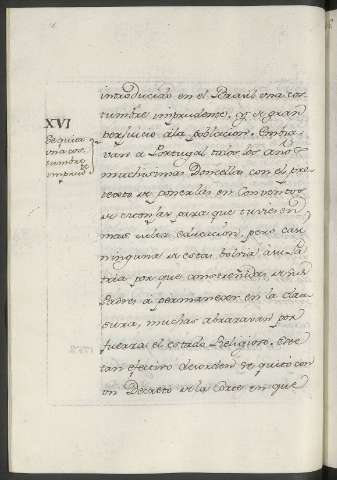 XVI
Se quita
una cos-
tumbre
introducido en el Brasil una cos-
tumbre imprudente, y de gran
perjuicio à la poblacion. Embia-
van à Portugal todos los años
muchisimas Doncellas con el pre-
texto de ponerlas en Conventos
de Monjas para que tuviesen
mas culta educacion, pero casi
ninguna de estas bolvia à su Pa-
tria por que constreñidas de sus
Padres à permanecer en la clau-
sura, muchas abrazavan por
fuerza el estado Religioso. Este
tan efectivo desorden se quitó con
un Decreto de la Corte en que